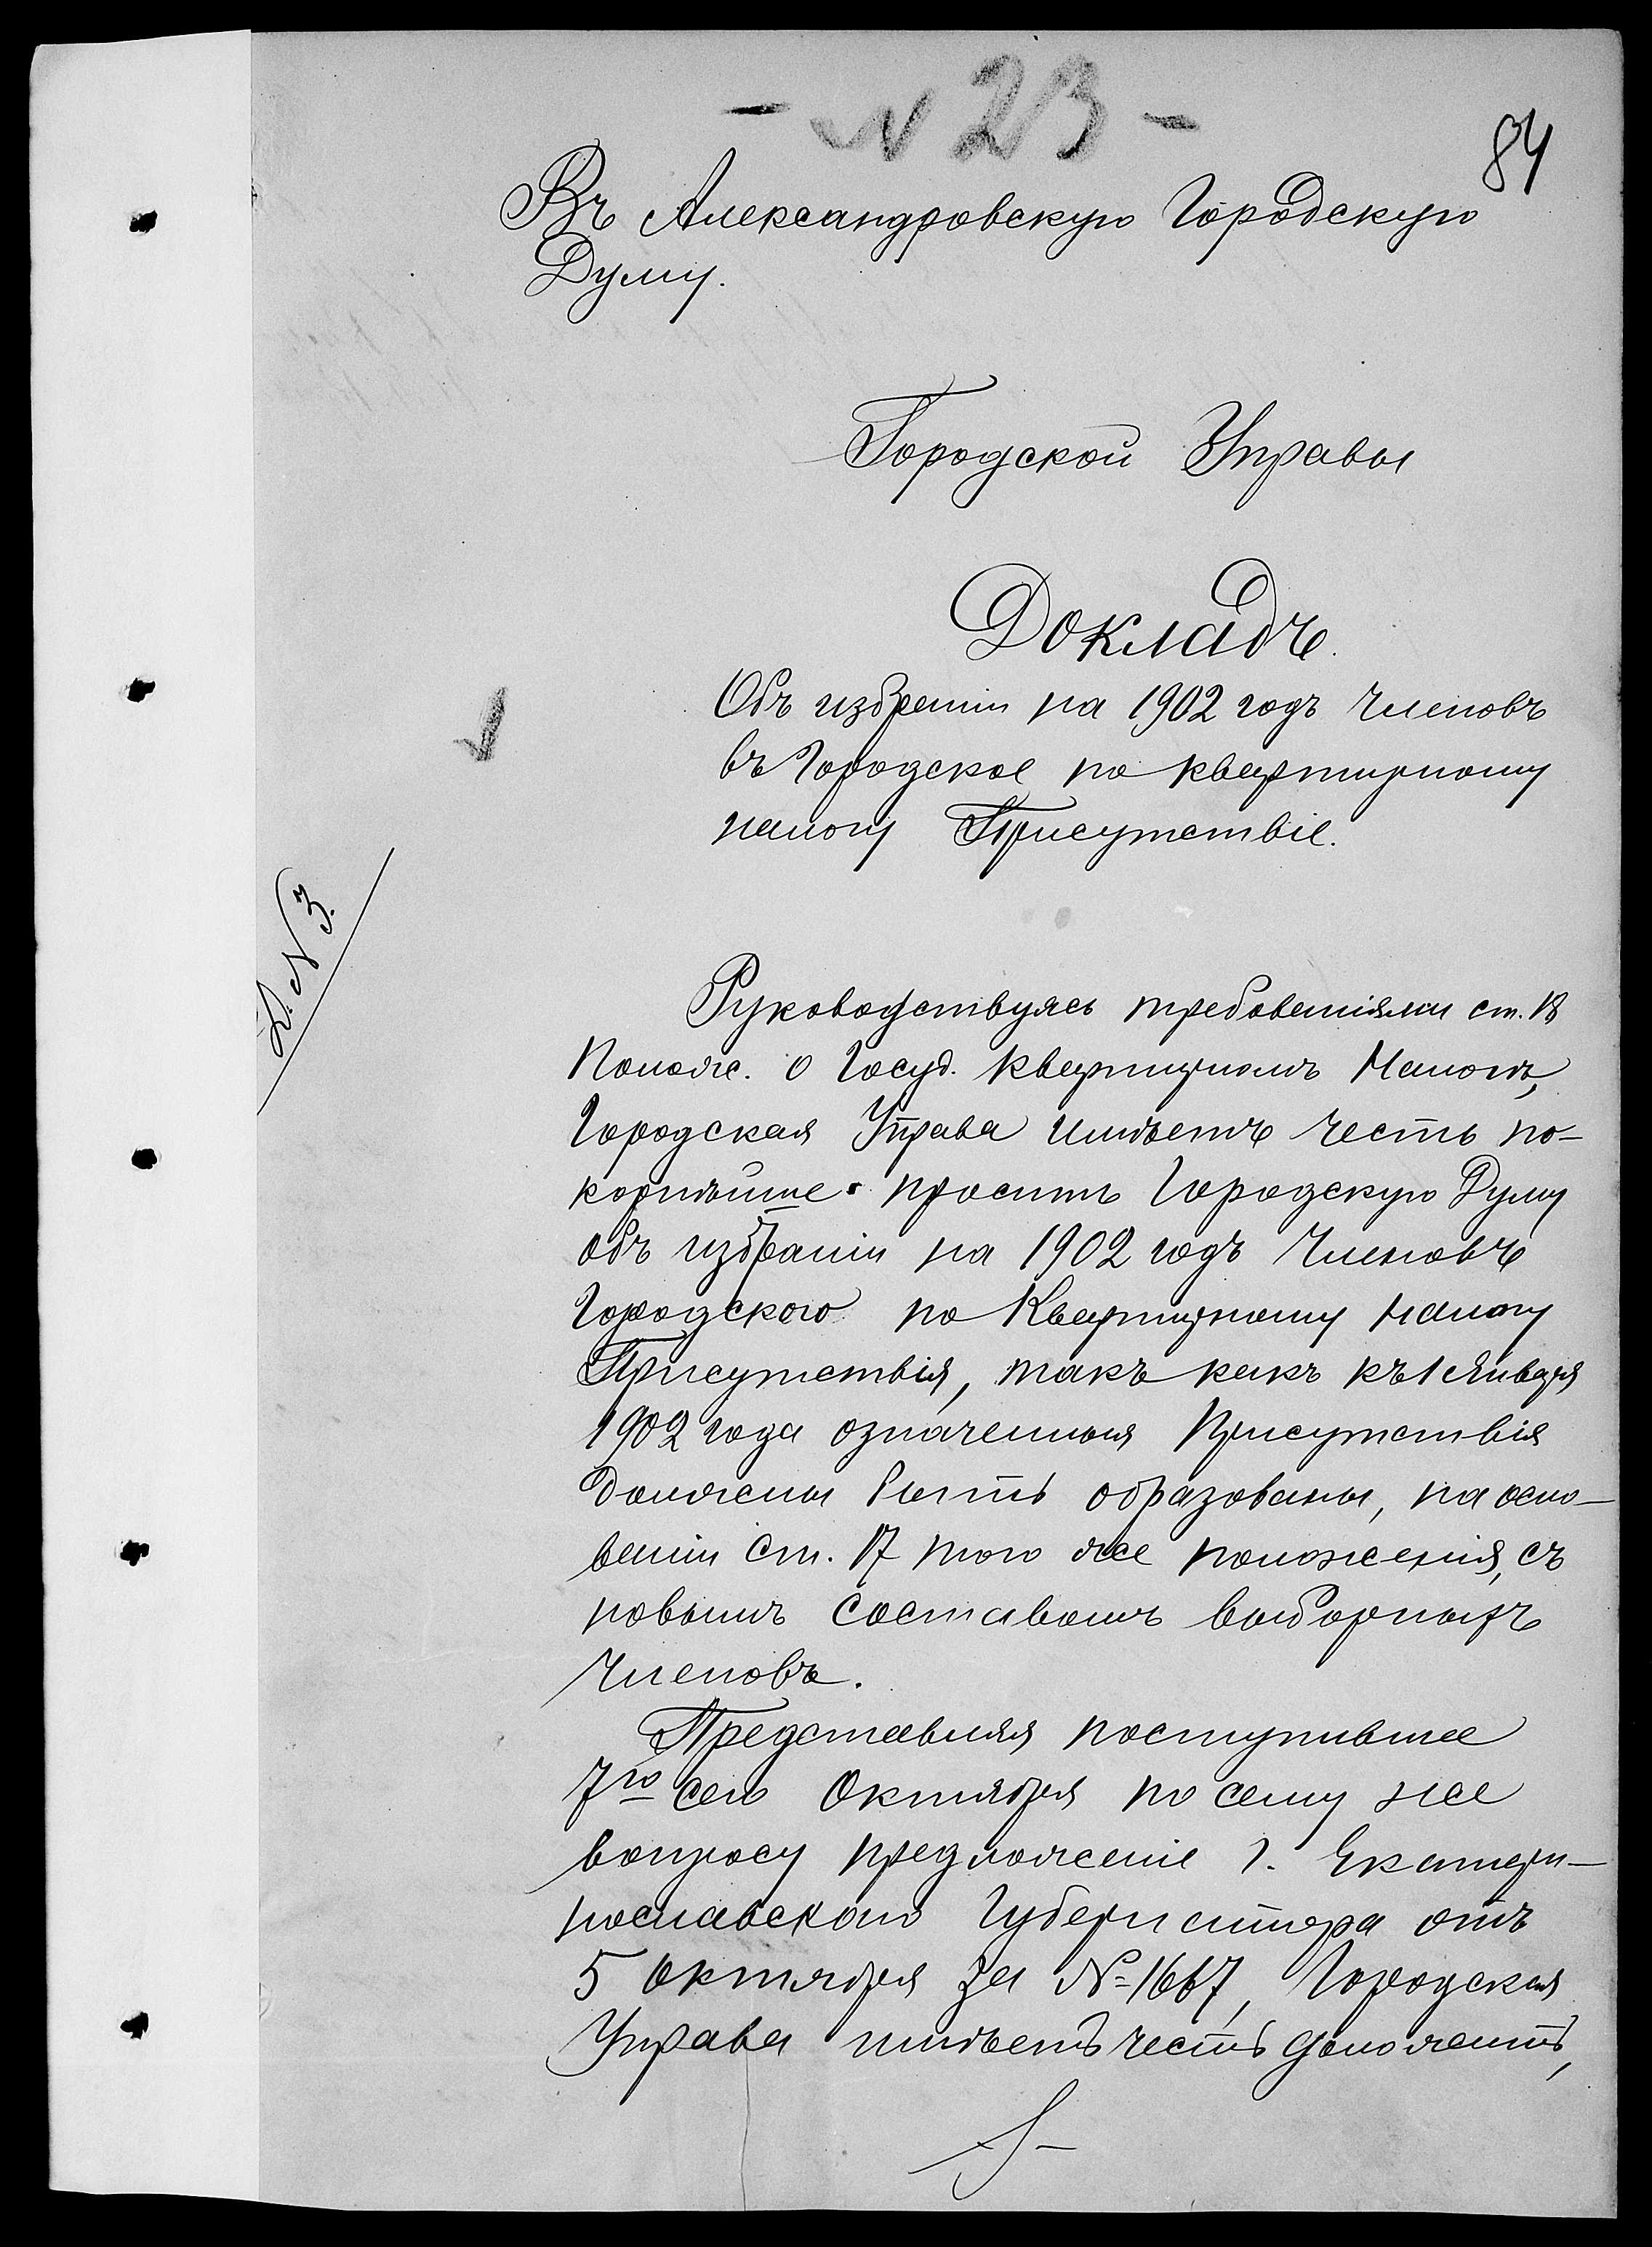 - N 23 -
84
Въ Александровскую Городскую
Думу.
Городской Управы
Докладъ.
Объ избраніи на 1902 годъ членовъ
въ Городское по квартирному
налогу Присутствіе.
Д. N 3.
Руководствуясь требованіями ст. 18
Полож. о Госуд. Квартирномъ Налогѣ,
Городская Управа имѣетъ честь по-
корнѣйше просить Городскую Думу
объ избраніи на 1902 годъ Членовъ
Городского по Квартирному налогу
Присутствія, такъ какъ къ 1 Января
1902 года означенныя Присутствія
должны быть образованы, на осно-
ваніи ст. 17 того же положенія, съ
новымъ составомъ выборныхъ
членовъ.
Представляя поступившее
7го сего Октября по сему же
вопросу предложеніе г. Екатери-
нославскаго Губернатора отъ
5 Октября за № 1667, Городская
Управа имѣетъ честь доложить,